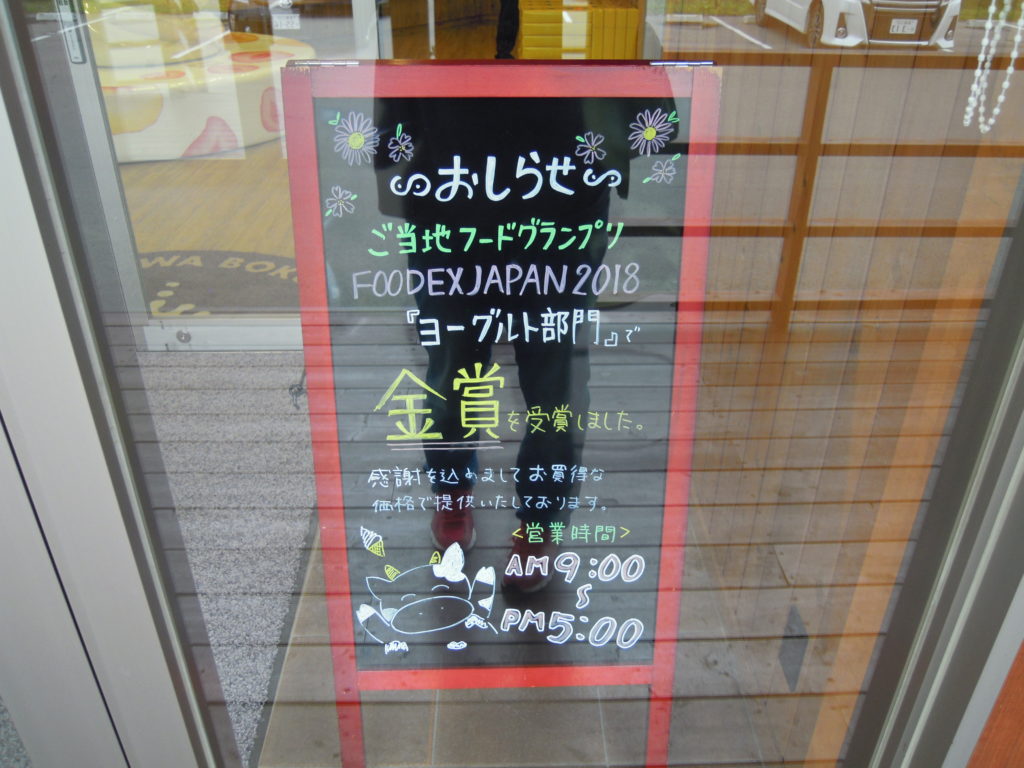 おしらせ
ご当地フードグランプリ
FOODEX JAPAN 2018
『ヨーグルト部門』で
金賞を受賞しました。
感謝を込めましてお買得な
価格で提供いたしております。
<営業時間>
AM9:00
〜
PM5:00
WA BOKU